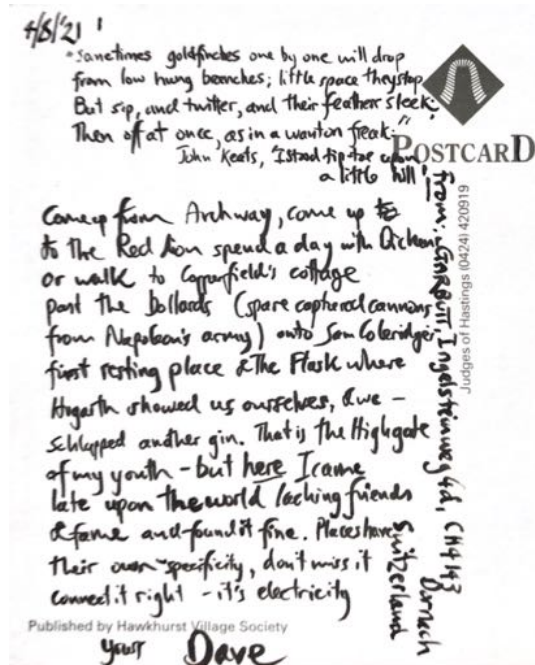 4/8/'21
"Sometimes goldfinches one by one will drop
from low hung branches; little space they stop
But sip, and twitter, and their feathers sleek;
Then off at once, as in a wanton freak:"
John Keats, "I stood tip-toe upon
a little hill"
POSTCARD
Come up from Archway, come up
to the Red Lion spend a day with Dickens
or walk to Copperfield's cottage
past the bollards (spare captured cannons
from Napoleon's army) onto Sam Coleridge's
first resting place & The Flask where
Hogarth showed us ourselves, & we –
schlepped another gin. That is the Highgate
of my youth – but here I came
late upon the world lacking friends
& fame and found it fine. Places have
their own specificity, don't miss it
connect it right – it's electricity
Published by Hawkhurst Village Society
yours Dave
from: GARBUTT, Ingelsteinweg 4d, CH4143
Dornach
Switzerland
Judges of Hastings (0424) 420919